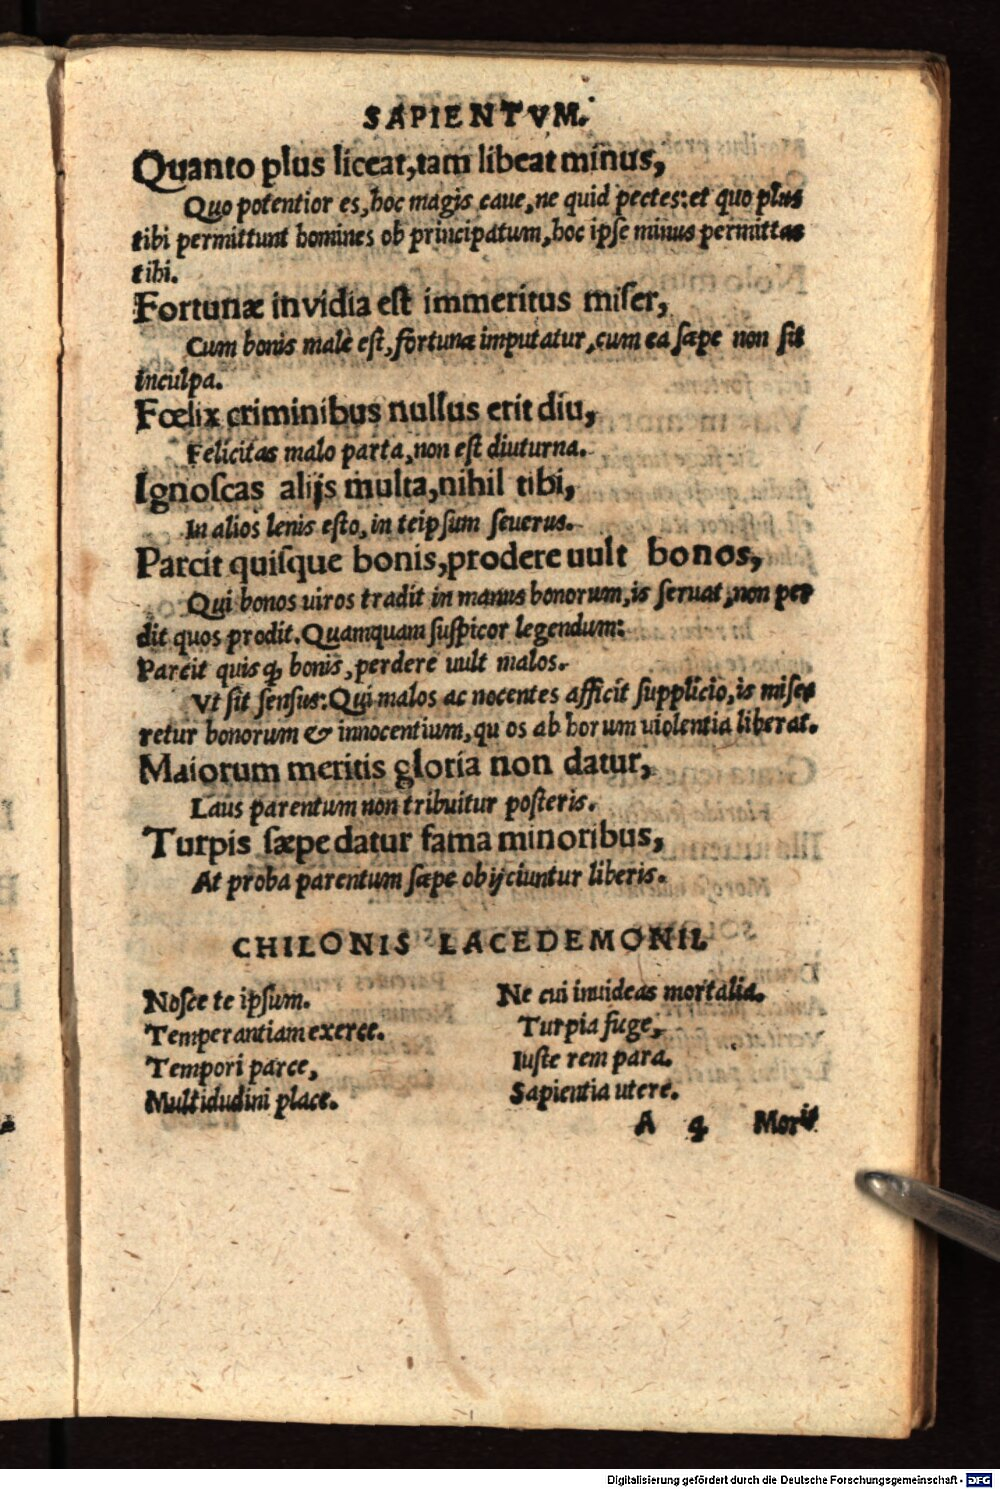 SAPIENTVM.
Quanto plus liceat, tam libeat minus,
Quo potentior es, hoc magis caue, ne quid pectes: et quo plus
tibi permittunt homines ob principatum, hoc ipse minus permittas
tibi.
Fortunæ invidia est immeritus miser,
Cum bonis male est, fortunæ imputatur, cum ea sæpe non sit
inculpa.
Fœlix criminibus nullus erit diu,
Felicitas malo parta, non est diuturna.
Ignoscas alijs multa, nihil tibi,
In alios lenis esto, in teipsum seuerus.
Parcit quisque bonis, prodere uult bonos,
Qui bonos uiros tradit in manus bonorum, is seruat, non per
dit quos prodit. Quamquam suspicor legendum:
Parcit quisq; bonis, perdere uult malos.
Vt sit sensus: Qui malos ac nocentes afficit supplicio, is mise
retur bonorum & innocentium, qu os ab horum uiolentia liberat.
Maiorum meritis gloria non datur,
Laus parentum non tribuitur posteris.
Turpis sæpe datur fama minoribus,
At proba parentum sæpe obijciuntur liberis.
CHILONIS LACEDEMONII.
Nosce te ipsum.
Temperantiam exerce.
Tempori parce,
Multidudini place.
Ne cui inuideas mortalia.
Turpia fuge,
Iuste rem para.
Sapientia utere.
A 4 Moris
Digitalisierung gefördert durch die Deutsche Forschungsgemeinschaft - DFG